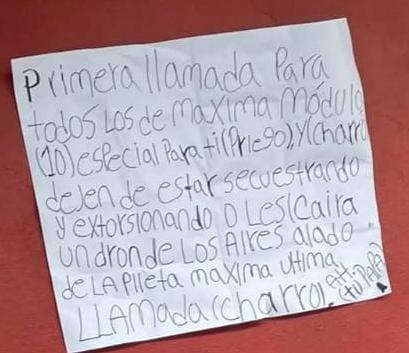 Primera llamada Para
todos Los de maxima módulo
(10) especial Para ti (Priego), Y (charro
dejen de estar secuestrando
y extorsionando O Les (caira
un dron de Los Aires alado
de LA Pileta maxima ultima
LLAMada (charro). Att.
(tu PAPÁ)